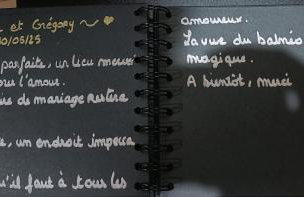 et Grégory ~ 
10/05/25
parfaite, un lieu
l'amour.
de mariage restera
, un endroit
qu'il faut à tous les
amoureux.
La vue du balnéo
magique.
A bientôt, merci